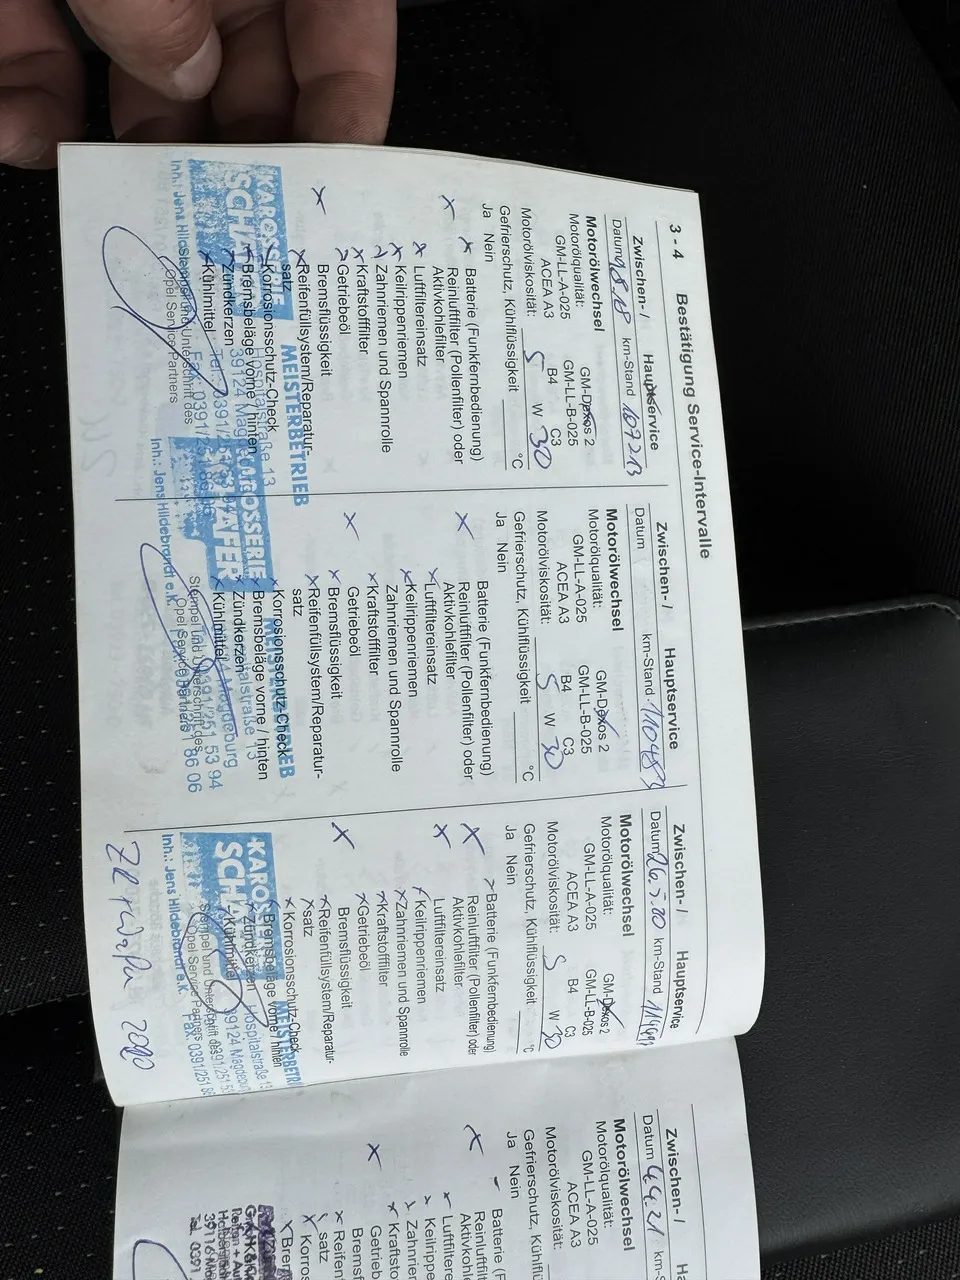 3 - 4 Bestätigung Service-Intervalle
Zwischen- / Hauptservice
Datum 18 km-Stand 107213
Motorölwechsel
Motorölqualität: GM-Dexos 2
GM-LL-A-025 GM-LL-B-025
ACEA A3 B4 C3
Motorölviskosität: 5 W 30
Gefrierschutz, Kühlflüssigkeit °C
Ja Nein
Batterie (Funkfernbedienung)
Reinluftfilter (Pollenfilter) oder
Aktivkohlefilter
Luftfiltereinsatz
Keilrippenriemen
Zahnriemen und Spannrolle
Kraftstofffilter
Getriebeöl
Bremsflüssigkeit
Reifenfüllsystem/Reparatur-
satz
Korrosionsschutz-Check
Bremsbeläge vorne / hinten
Zündkerzen
Kühlmittel
Stempel und Unterschrift des
Opel Service Partners
MEISTERBETRIEB
Hospitalstraße 13
39124
Inh.: Jens Hildebrandt
Zwischen- / Hauptservice
Datum km-Stand
Motorölwechsel
Motorölqualität: GM-Dexos 2
GM-LL-A-025 GM-LL-B-025
ACEA A3 B4 C3
Motorölviskosität: 5 W 30
Gefrierschutz, Kühlflüssigkeit °C
Ja Nein
Batterie (Funkfernbedienung)
Reinluftfilter (Pollenfilter) oder
Aktivkohlefilter
Luftfiltereinsatz
Keilrippenriemen
Zahnriemen und Spannrolle
Kraftstofffilter
Getriebeöl
Bremsflüssigkeit
Reifenfüllsystem/Reparatur-
satz
Korrosionsschutz-Check
Bremsbeläge vorne / hinten
Zündkerzen
Kühlmittel
Stempel und Unterschrift des
Opel Service Partners
KAROSSERIE
SCHÄFER
MEISTERBETRIEB
Magdeburg
Inh.: Jens Hildebrandt e.K.
Zwischen- / Hauptservice
Datum 26.5.20 km-Stand
Motorölwechsel
Motorölqualität: GM-Dexos 2
GM-LL-A-025 GM-LL-B-025
ACEA A3 B4 C3
Motorölviskosität: 5 W 30
Gefrierschutz, Kühlflüssigkeit °C
Ja Nein
Batterie (Funkfernbedienung)
Reinluftfilter (Pollenfilter) oder
Aktivkohlefilter
Luftfiltereinsatz
Keilrippenriemen
Zahnriemen und Spannrolle
Kraftstofffilter
Getriebeöl
Bremsflüssigkeit
Reifenfüllsystem/Reparatur-
satz
Korrosionsschutz-Check
Bremsbeläge vorne / hinten
Zündkerzen
Kühlmittel
Stempel und Unterschrift des
Opel Service Partners
MEISTERBETRI
Hospitalstraße 13
39124 Magdebu
Inh.: Jens Hildebrandt e.K.
ZR + WaPu 2020
Zwischen- / Ha
Datum 4.4.21 km-S
Motorölwechsel
Motorölqualität:
GM-LL-A-025
ACEA A3
Motorölviskosität:
Gefrierschutz, Kühlfl
Ja Nein
Batterie (F
Reinluftfil
Aktivkohl
Luftfiltere
Keilrippe
Zahnrier
Kraftsto
Getrieb
Bremsf
Reifen
satz
Korros
Brer